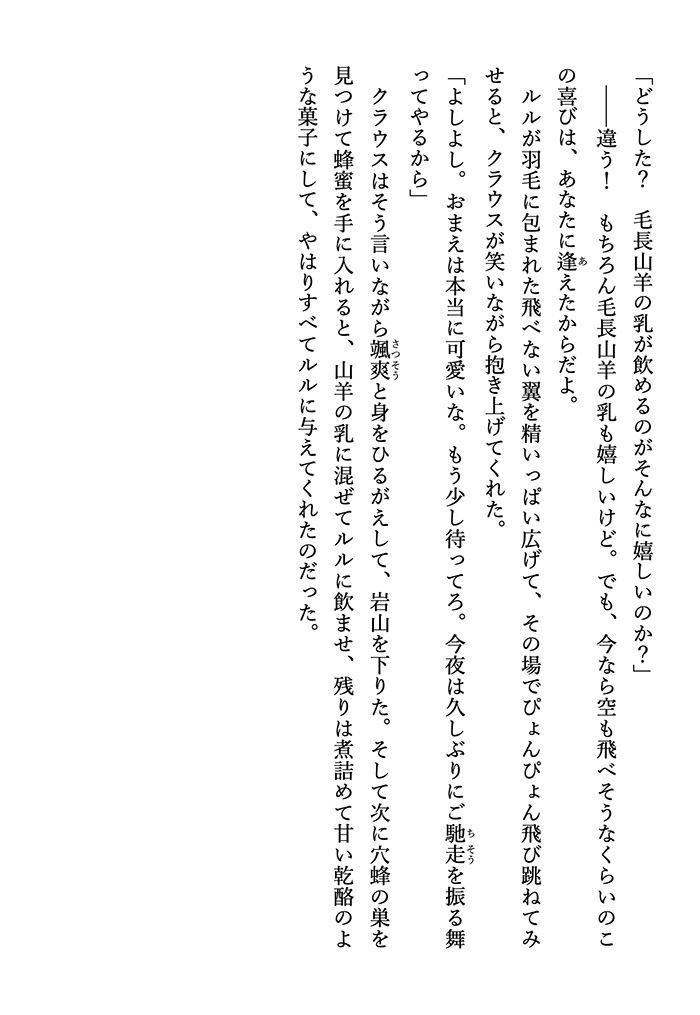 「どうした？　毛長山羊の乳が飲めるのがそんなに嬉しいのか？」
　――違う！　もちろん毛長山羊の乳も嬉しいけど。でも、今なら空も飛べそうなくらいのこ
の喜びは、あなたに逢えたからだよ。
　ルルが羽毛に包まれた飛べない翼を精いっぱい広げて、その場でぴょんぴょん飛び跳ねてみ
せると、クラウスが笑いながら抱き上げてくれた。
「よしよし。おまえは本当に可愛いな。もう少し待ってろ。今夜は久しぶりにご馳走を振る舞
ってやるから」
　クラウスはそう言いながら颯爽と身をひるがえして、岩山を下りた。そして次に穴蜂の巣を
見つけて蜂蜜を手に入れると、山羊の乳に混ぜてルルに飲ませ、残りは煮詰めて甘い乾酪のよ
うな菓子にして、やはりすべてルルに与えてくれたのだった。